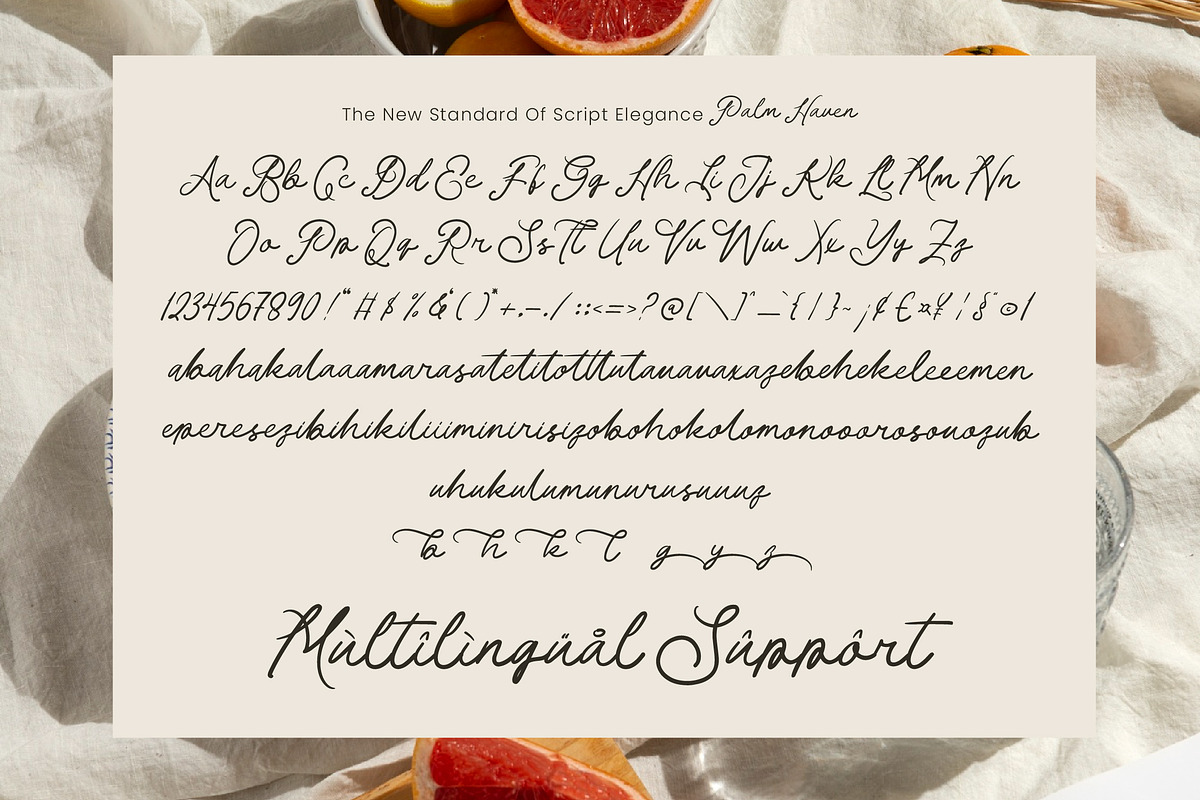 The New Standard Of Script Elegance Palm Haven
Aa Bb Cc Dd Ee Ff Gg Hh Ii Jj Kk Ll Mm Nn
Oo Pp Qq Rr Ss Tt Uu Vv Ww Xx Yy Zz
1234567890!“#$%&‘()*+,-./:;<=>?@[\]^_`{|}~¡¢£¤¥¦§¨©
abahakalaaamarasatetitotttutauavaxazebehekeleeemen
eperesezibihikiliiiminirisizobohokolomonooorosouozub
uhukulumunurusuuuz
b h k l g y z
Mùltîlìngüål Sûppôrt